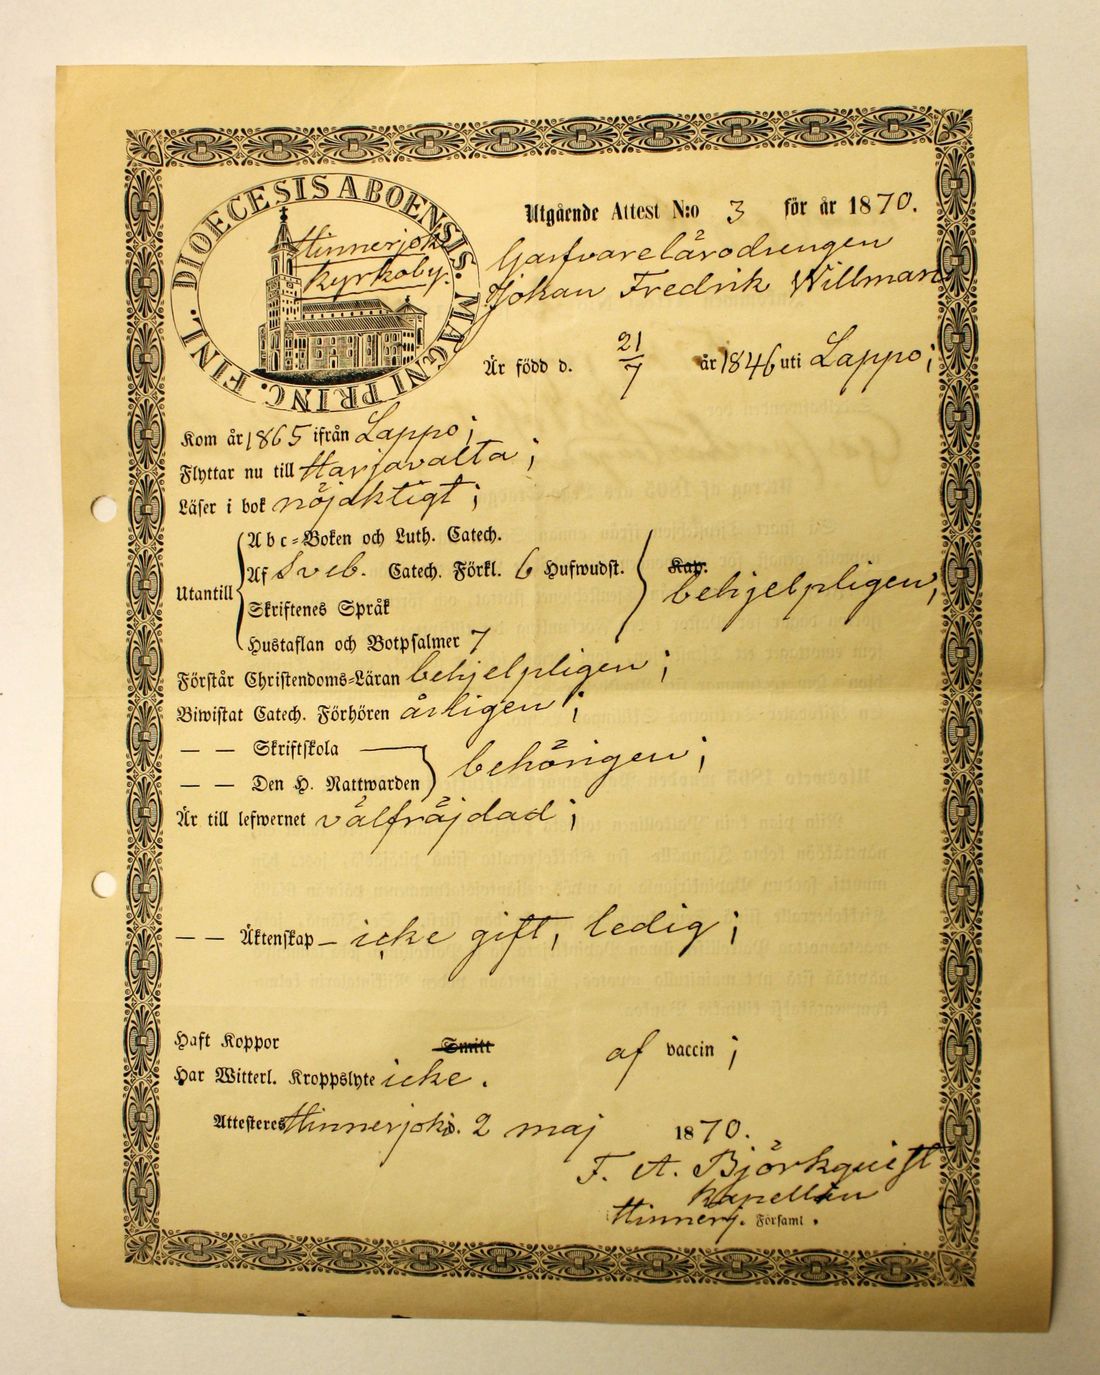 DIOECESIS ABOENSIS. MAGNI PRINC. FINL.
Hinnerjoki
Kyrkoby.
Utgående Attest N:o 3 för år 1870.
Garfvarelärodrengen
Johan Fredrik Willman
Är född d. 21/7 år 1846 uti Lappo;
Kom år 1865 ifrån Lappo;
Flyttar nu till Harjavalta;
Läser i bok nöjaktigt;
Utantill
Abc-Boken och Luth. Catech.
Af Sveb. Catech. Förkl. 6 Hufwudst.
Skriftenes Språk
Hustaflan och Botpsalmer 7
Kap.
behjelpligen;
Förstår Christendoms-Läran behjelpligen;
Biwistat Catech. Förhören årligen;
— — Skriftskola
— — Den H. Nattwarden
behörigen;
Är till lefwernet välfräjdad;
— — Äktenskap – icke gift, ledig;
Haft Koppor Smitt af vaccin;
Har Witterl. Kroppslyte icke.
Attesteres Hinnerjoki d. 2 maj 1870.
F. A. Björkqvist
Kapellan
Hinnerj. Församl.